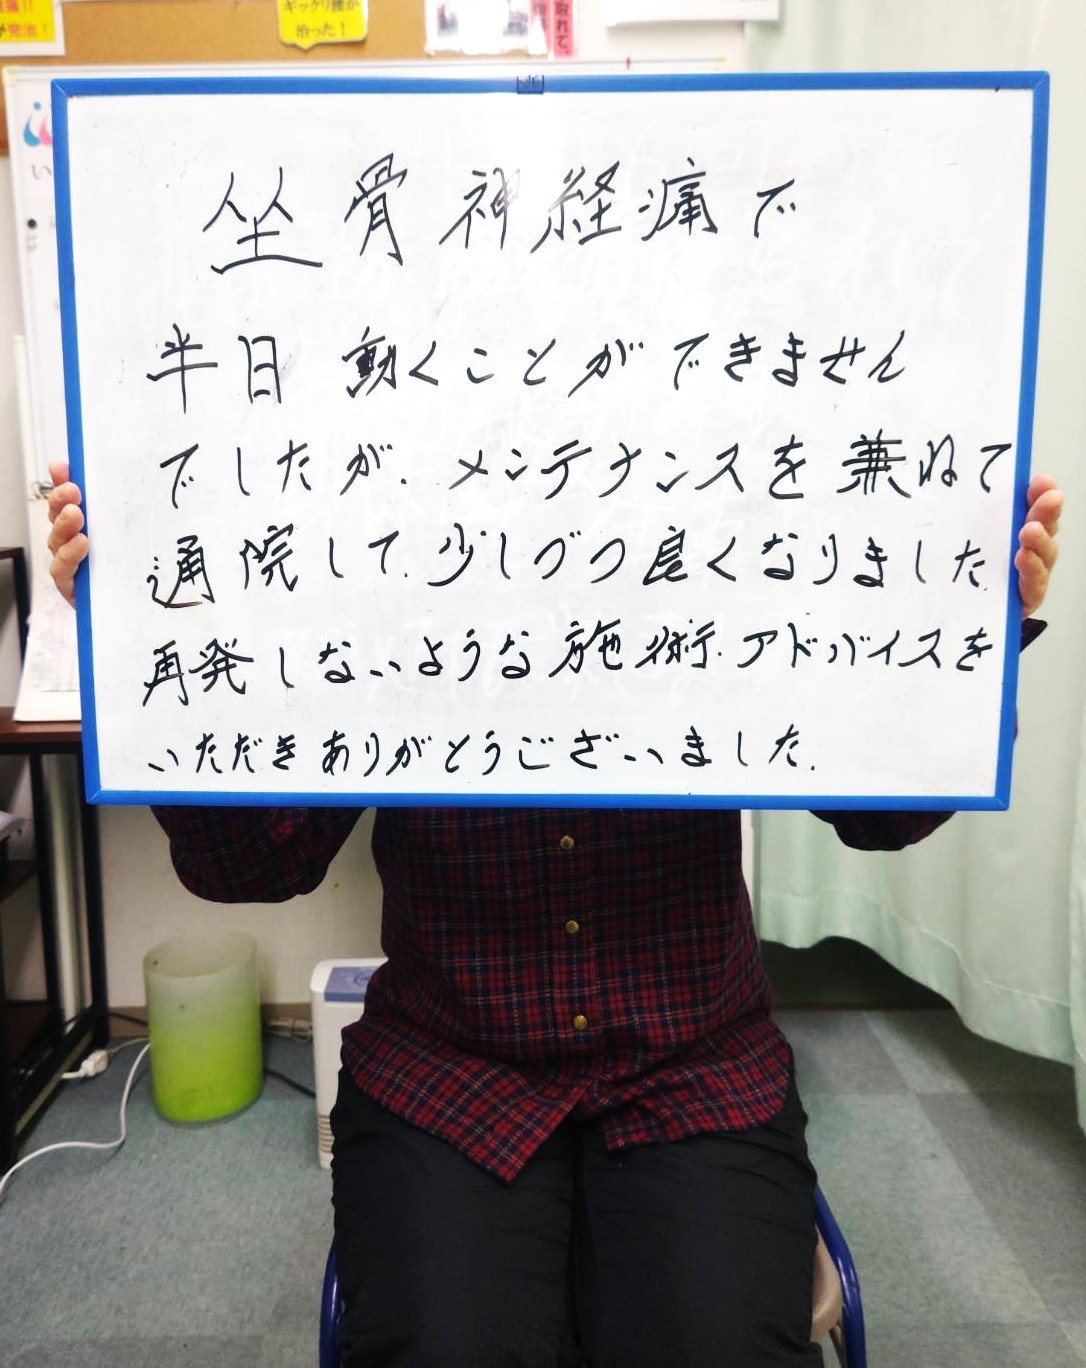 ギックリ腰が
治った!
取れて、
い
坐骨神経痛で
半日動くことができません
でしたが、メンテナンスを兼ねて
通院して、少しづつ良くなりました
再発しないような施術、アドバイスを
いただきありがとうございました。